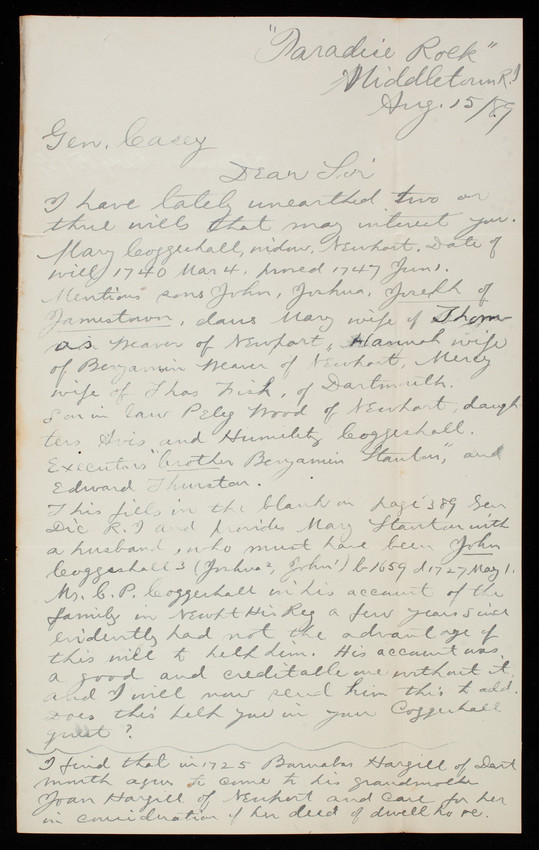 "Paradise Rock"
Middletown R.I
Aug. 15/89
Gen. Casey
Dear Sir
I have lately unearthed two or
three wills that may interest you.
Mary Coggeshall, widow, Newport. Date of
will 1740 Mar 4. proved 1747 Jun 1.
Mentions sons John, Joshua, Joseph of
Jamestown, daus Mary wife of Thom
as Weaver of Newport, Hannah wife
of Benjamin Weaver of Newport, Mercy
wife of Thos Fish, of Dartmouth.
Son in law Peleg Wood of Newport, daugh
ters Avis and Humility Coggeshall.
Executors "brother Benjamin Stanton," and
Edward Thurston.
This fills in the blank on page 389 Gen
Dic R.I and provides Mary Stanton with
a husband, who must have been John
Coggeshall 3 (Joshua 2, John 1) b 1659 d 1727 May 1.
Mr. C. P. Coggeshall in his account of the
family in Newpt His Reg a few years since
evidently had not the advantage of
this will to help him. His account was
a good and creditable one without it,
and I will now send him this to add.
Does this help you in your Coggeshall
quest?
I find that in 1725 Barnabas Hargill of Dart
mouth agrees to come to his grandmother
Joan Hargill of Newport and care for her
in consideration of her deed of dwell house.